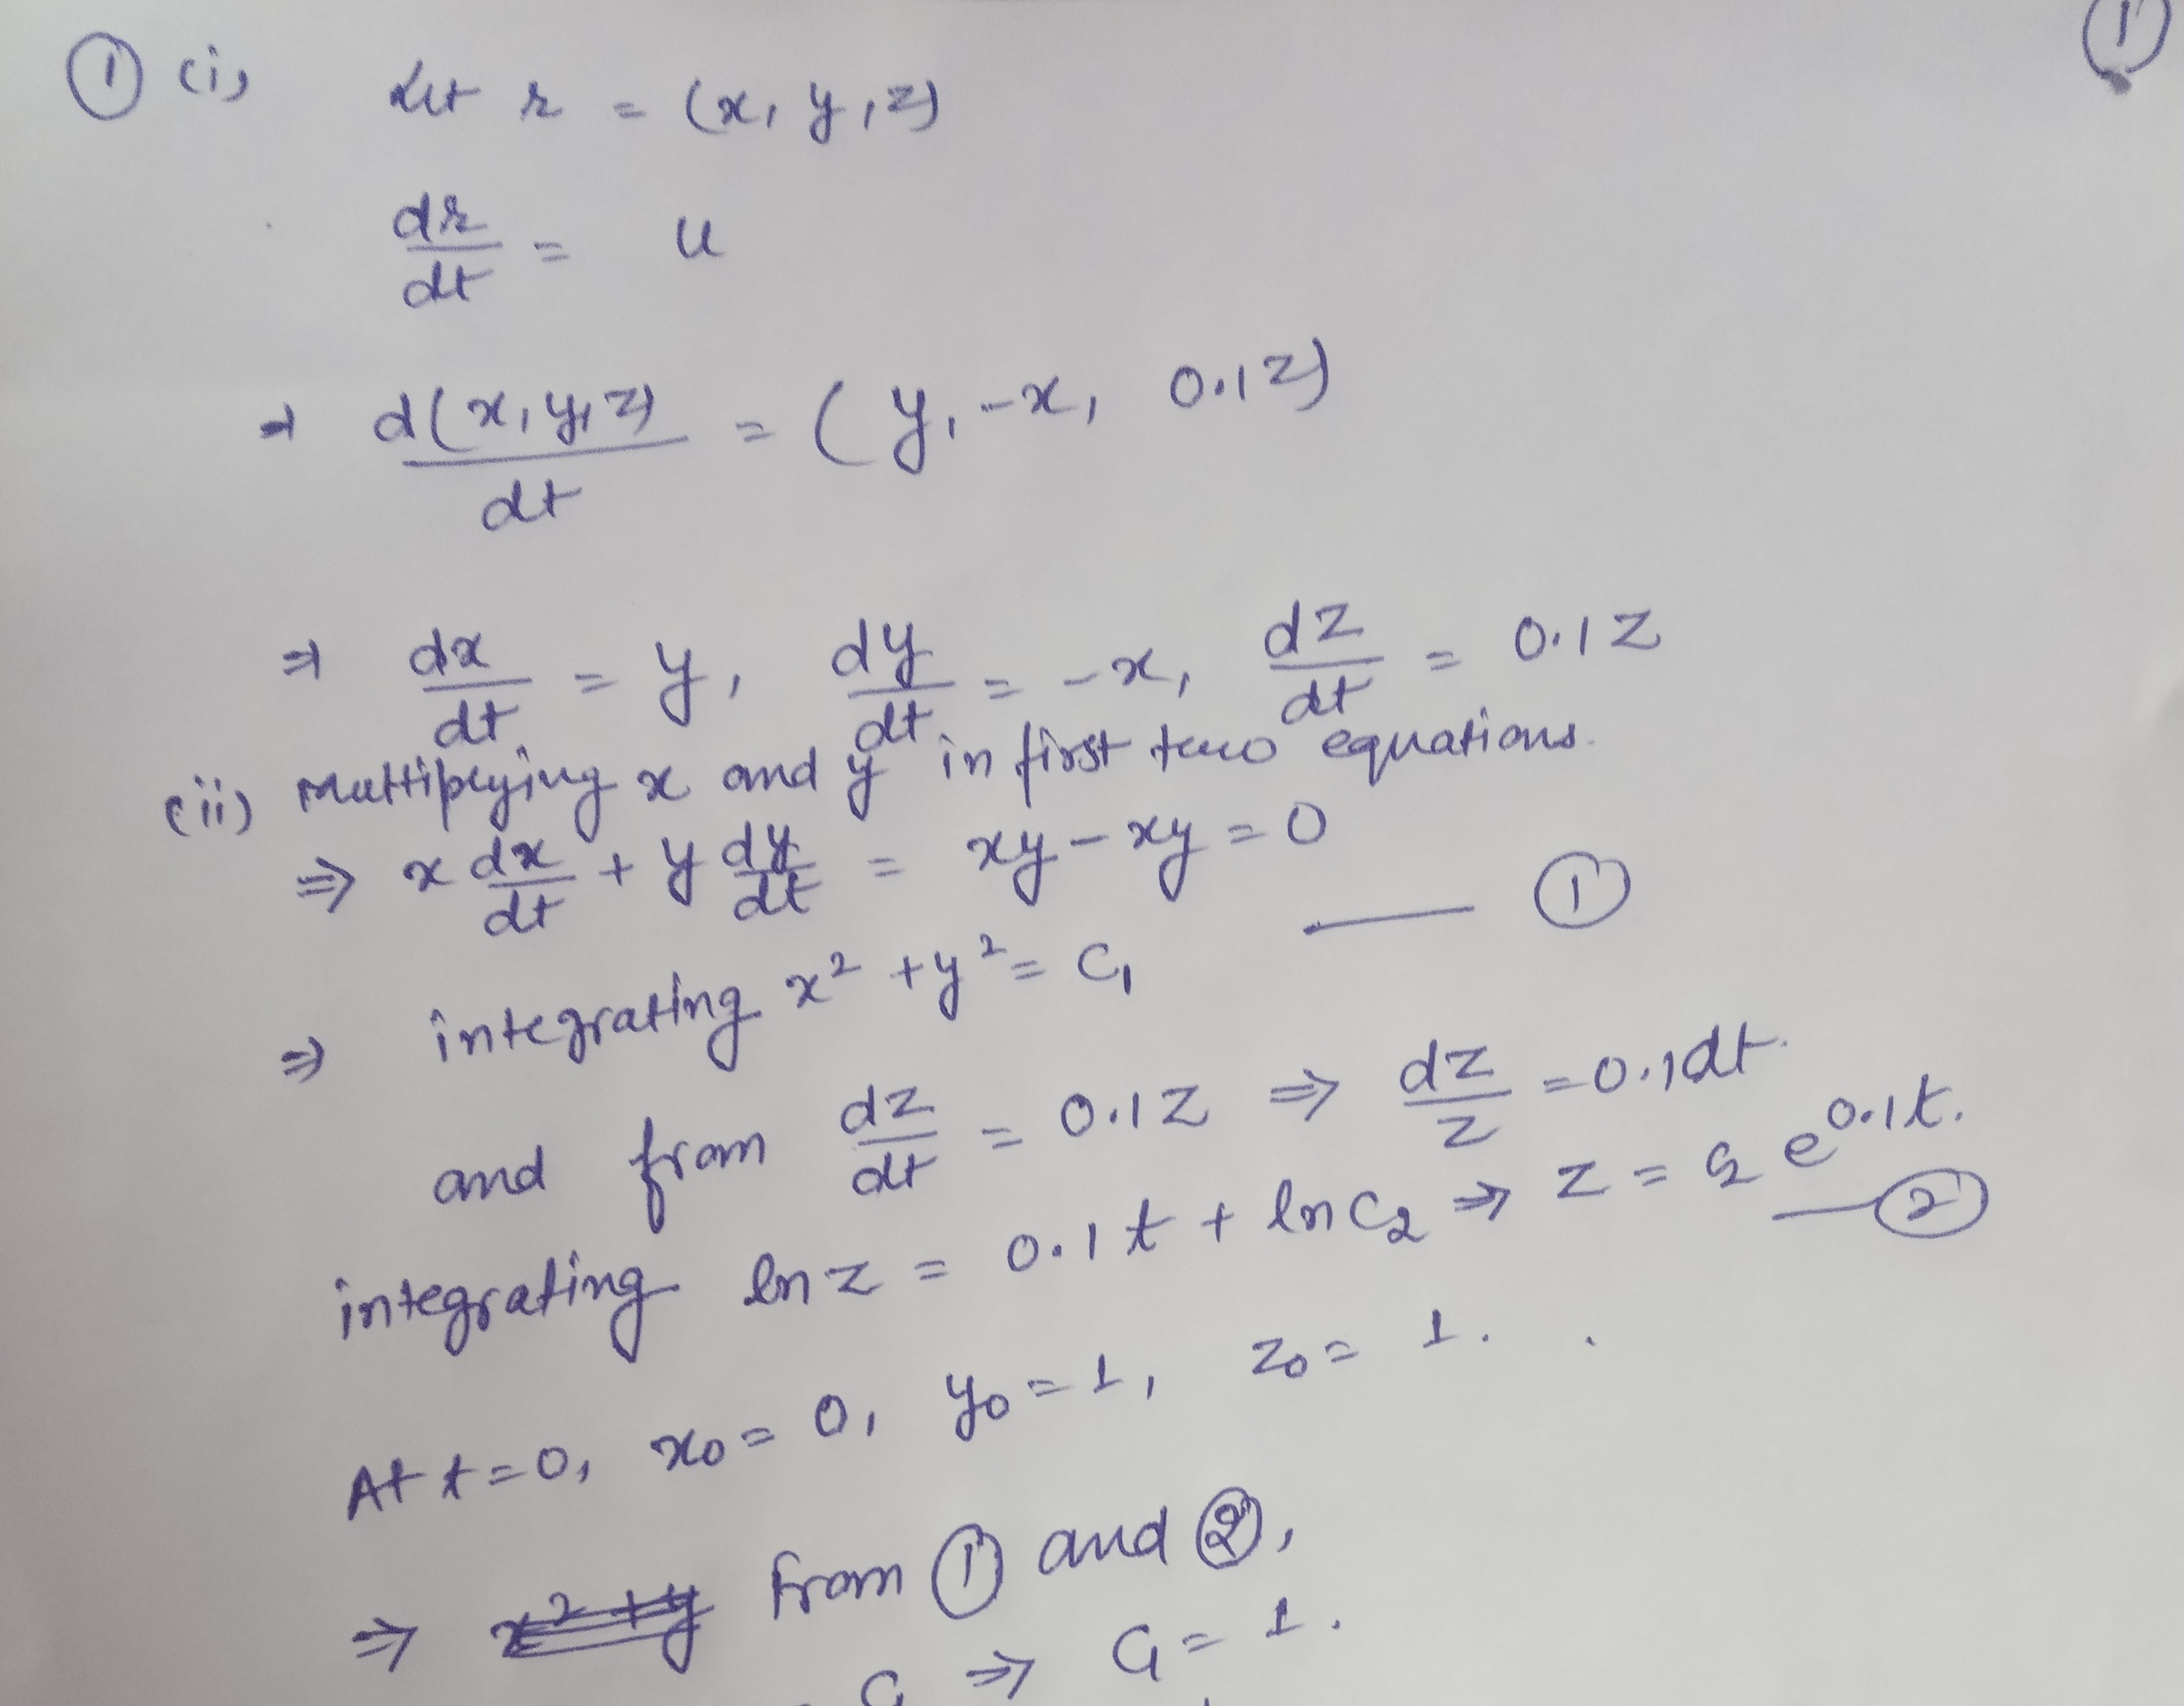 ①
① (i) Let r = (x, y, z)
dr/dt = u
⇒ d(x, y, z)/dt = (y, -x, 0.1z)
⇒ dx/dt = y, dy/dt = -x, dz/dt = 0.1z
(ii) Multiplying x and y in first two equations.
⇒ x dx/dt + y dy/dt = xy - xy = 0
⇒ integrating x² + y² = C₁ —— ①
and from dz/dt = 0.1z ⇒ dz/z = 0.1dt.
integrating ln z = 0.1t + ln C₂ ⇒ z = C₂ e^0.1t. —— ②
At t = 0, x₀ = 0, y₀ = 1, z₀ = 1.
⇒ from ① and ②,
⇒ C₁ = 1.